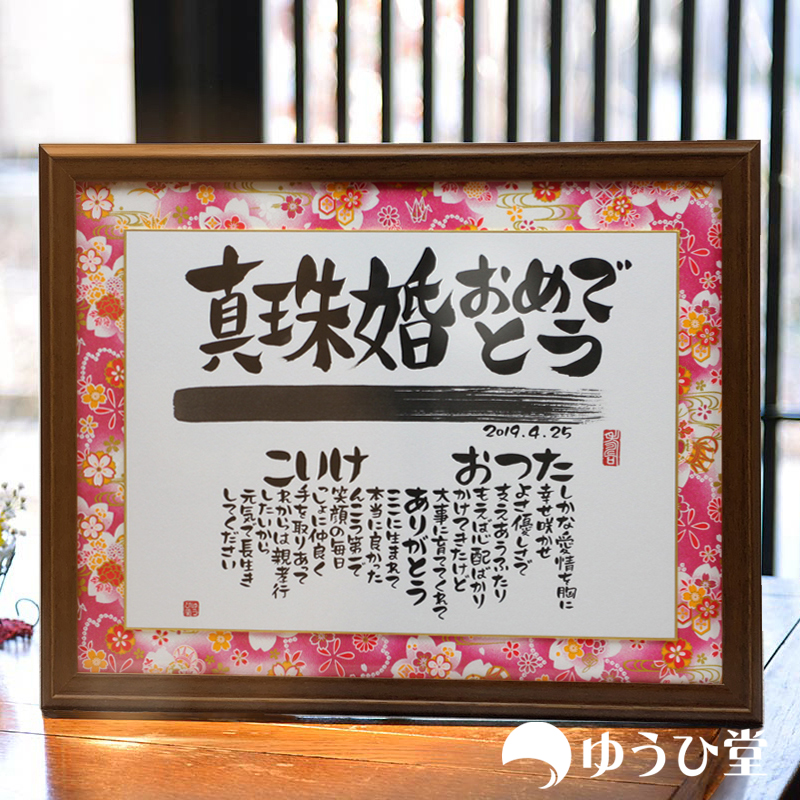 真珠婚おめで
とう
2019.4.25
おつた
しかな愛情を胸に
幸せ咲かせ
よさ優しさで
支えあうふたり
もえば心配ばかり
かけてきたけど
大事に育ててくれて
ありがとう
ここに生まれて
本当に良かった
こいけ
んこう第一で
笑顔の毎日
っしょに仲良く
手を取りあって
れからは親孝行
したいから
元気で長生き
してください
ゆうひ堂